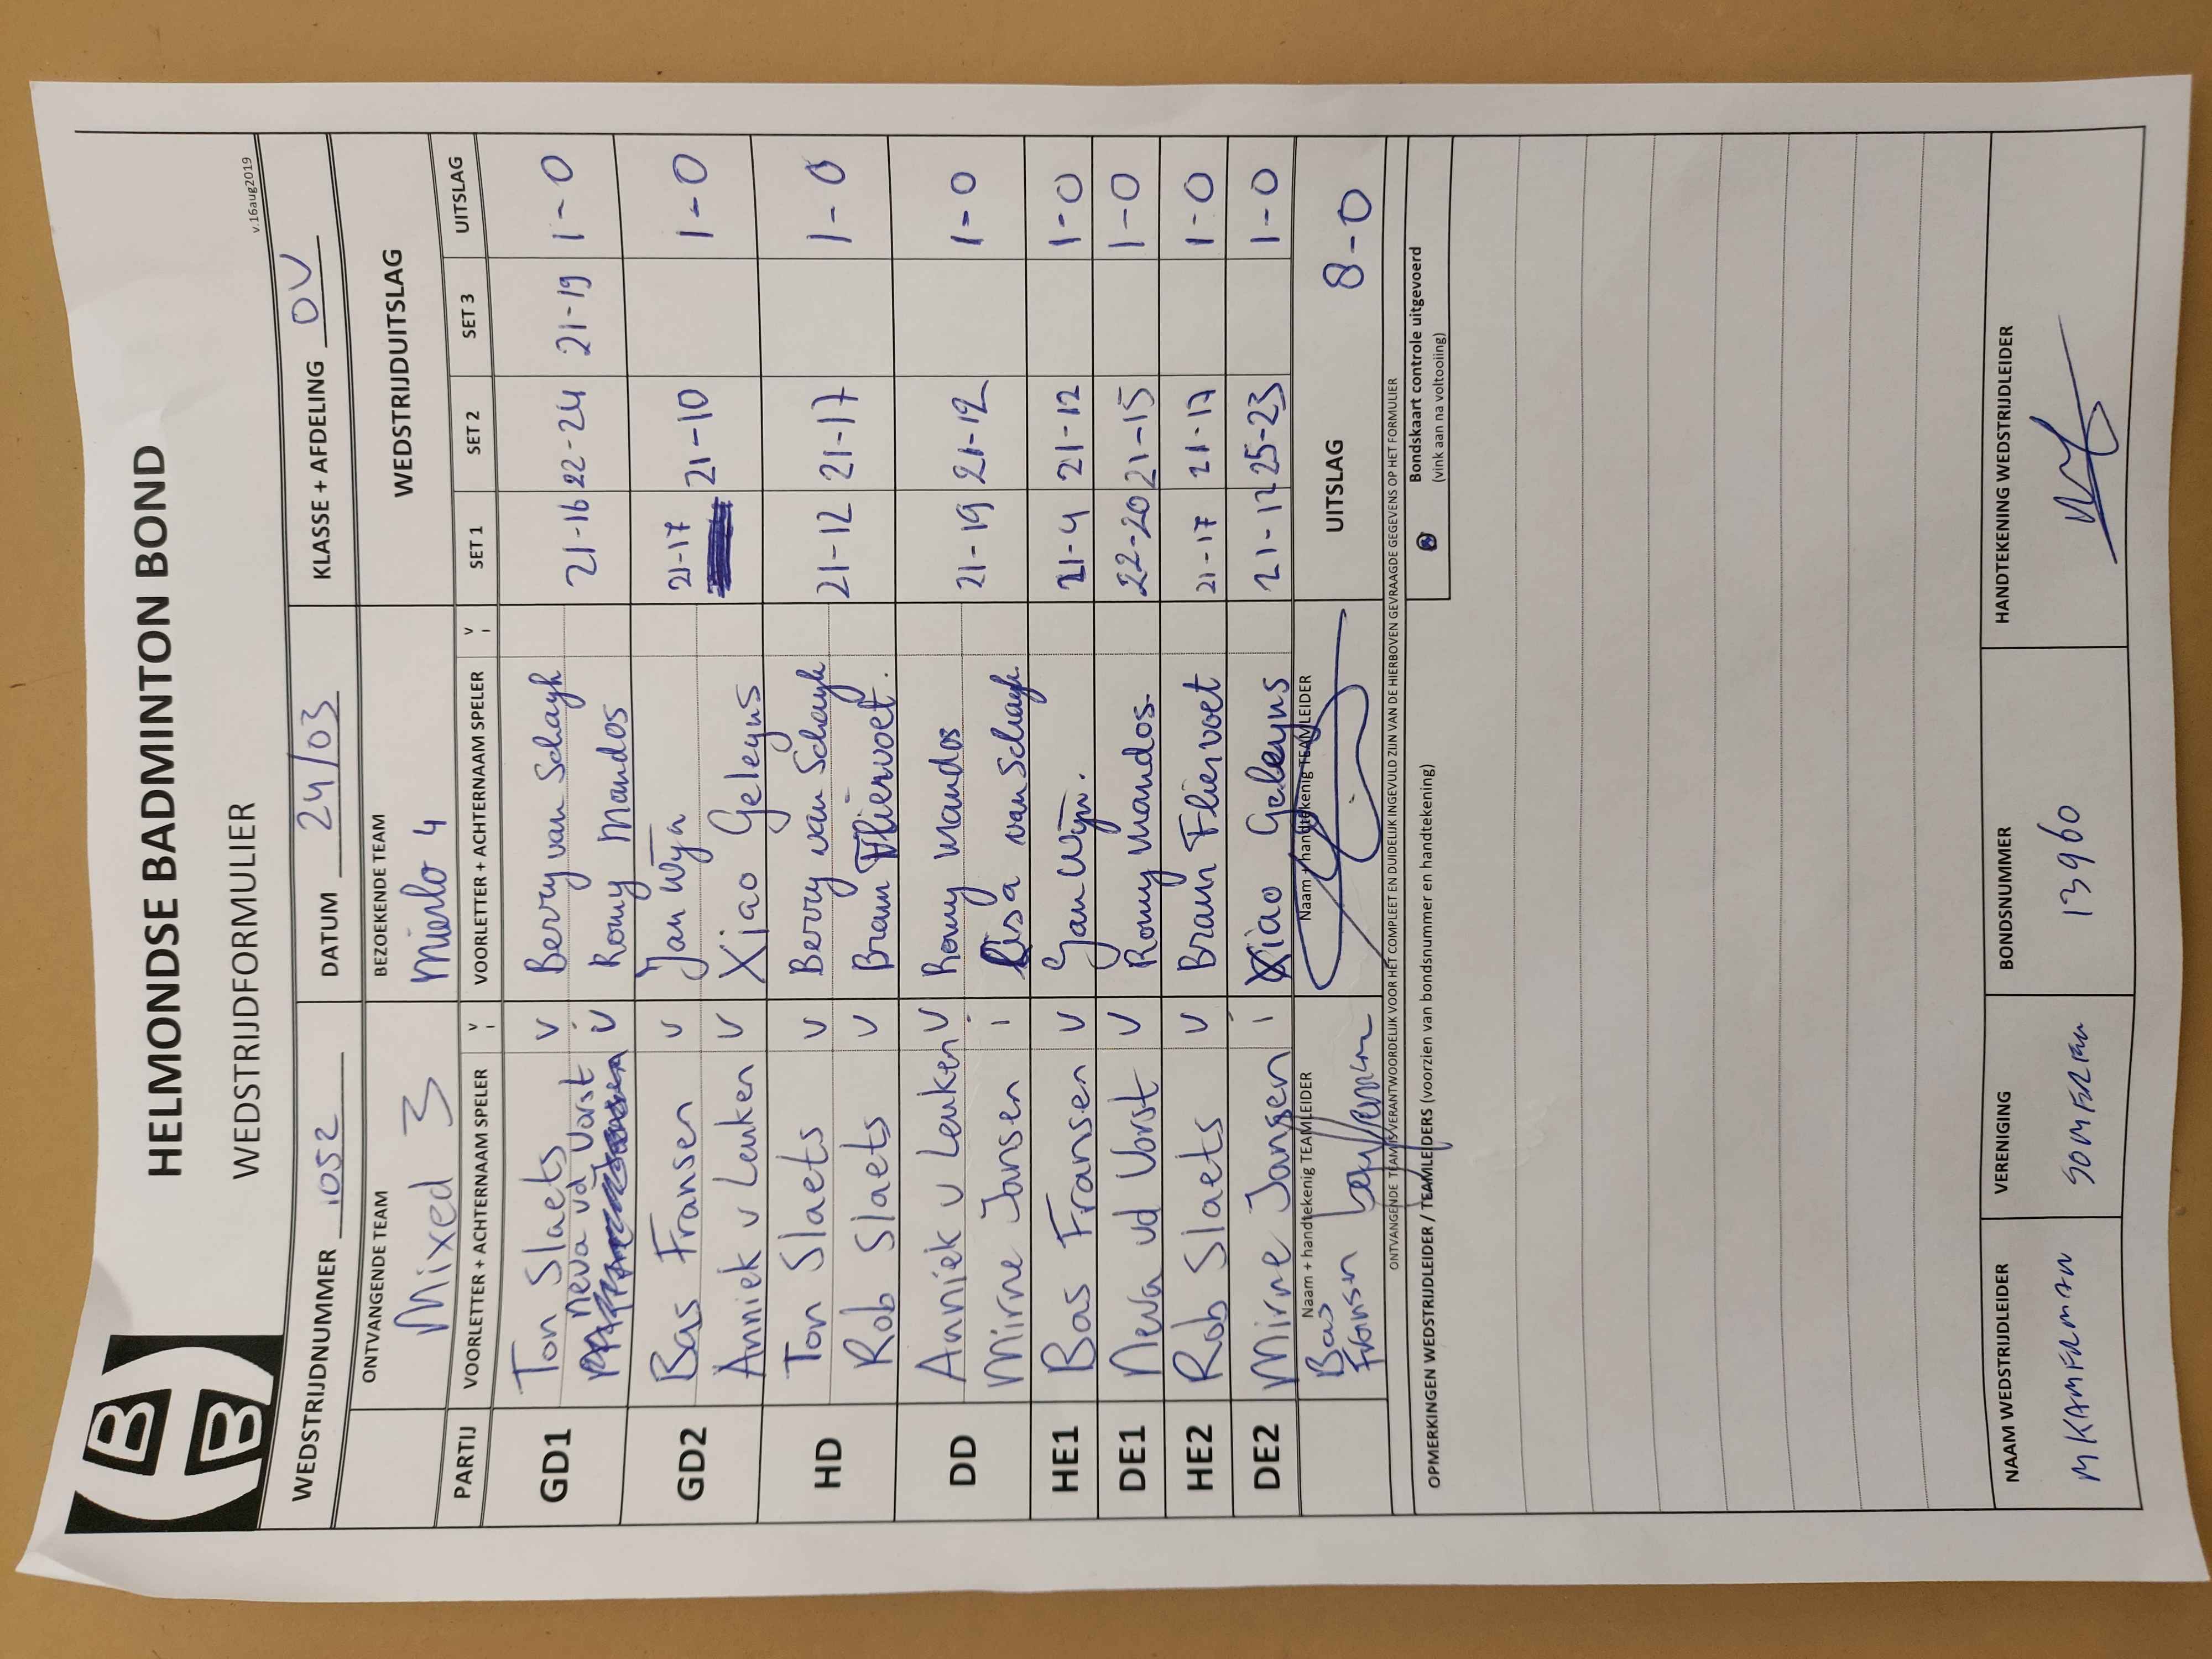 HELMONDSE BADMINTON BOND
WEDSTRIJDFORMULIER
v.16aug2019
WEDSTRIJDNUMMER 1052 DATUM 24/03 KLASSE + AFDELING OV
ONTVANGENDE TEAM BEZOEKENDE TEAM WEDSTRIJDUITSLAG
Mixed 3 Mierlo 4
PARTIJ VOORLETTER + ACHTERNAAM SPELER V I VOORLETTER + ACHTERNAAM SPELER V I SET 1 SET 2 SET 3 UITSLAG
GD1 Ton Slaets V Berry van Schayk 21-16 22-24 21-19 1-0
Neva vd Vorst V Romy Mandos
GD2 Bas Fransen V Jan Wijn 21-17 21-10 1-0
Anniek v Leuken V Xiao Geleyns
HD Ton Slaets V Berry van Schayk 21-12 21-17 1-0
Rob Slaets V Bram Fliervoet.
DD Anniek v Leuken V Romy Mandos 21-19 21-12 1-0
Mirne Jansen i Lisa van Schayk
HE1 Bas Fransen V Jan Wijn. 21-4 21-12 1-0
DE1 Neva vd Vorst V Romy Mandos. 22-20 21-15 1-0
HE2 Rob Slaets V Bram Fliervoet 21-17 21-17 1-0
DE2 Mirne Jansen i Xiao Geleyns 21-12 25-23 1-0
Naam + handtekenig TEAMLEIDER Naam + handtekenig TEAMLEIDER UITSLAG 8-0
Bas
Fransen
ONTVANGENDE TEAM IS VERANTWOORDELIJK VOOR HET COMPLEET EN DUIDELIJK INGEVULD ZIJN VAN DE HIERBOVEN GEVRAAGDE GEGEVENS OP HET FORMULIER
OPMERKINGEN WEDSTRIJDLEIDER / TEAMLEIDERS (voorzien van bondsnummer en handtekening)
Bondskaart controle uitgevoerd
(vink aan na voltooiing)
NAAM WEDSTRIJDLEIDER VERENIGING BONDSNUMMER HANDTEKENING WEDSTRIJDLEIDER
M KAMERMAN SOMEREN 13960